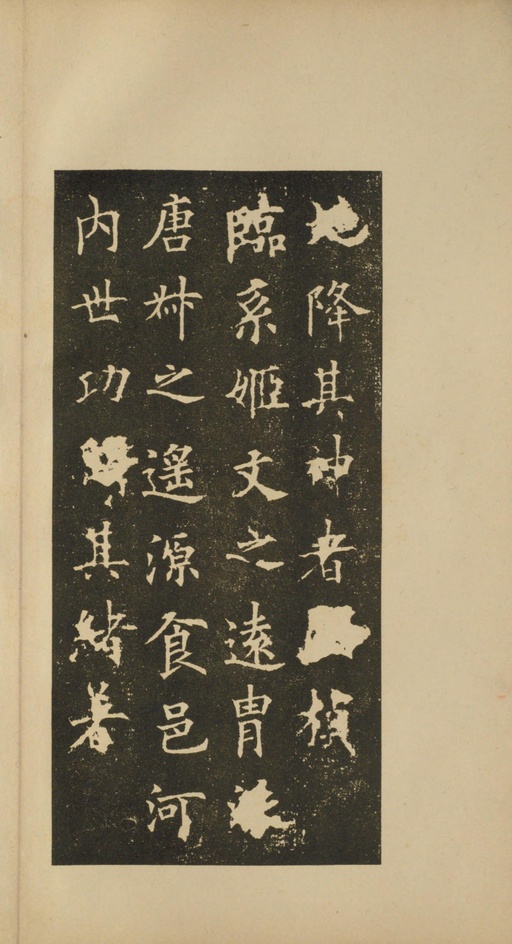 地降其神者楨
臨系姬文之遠冑派
唐叔之遥源食邑河
内世功其緒著